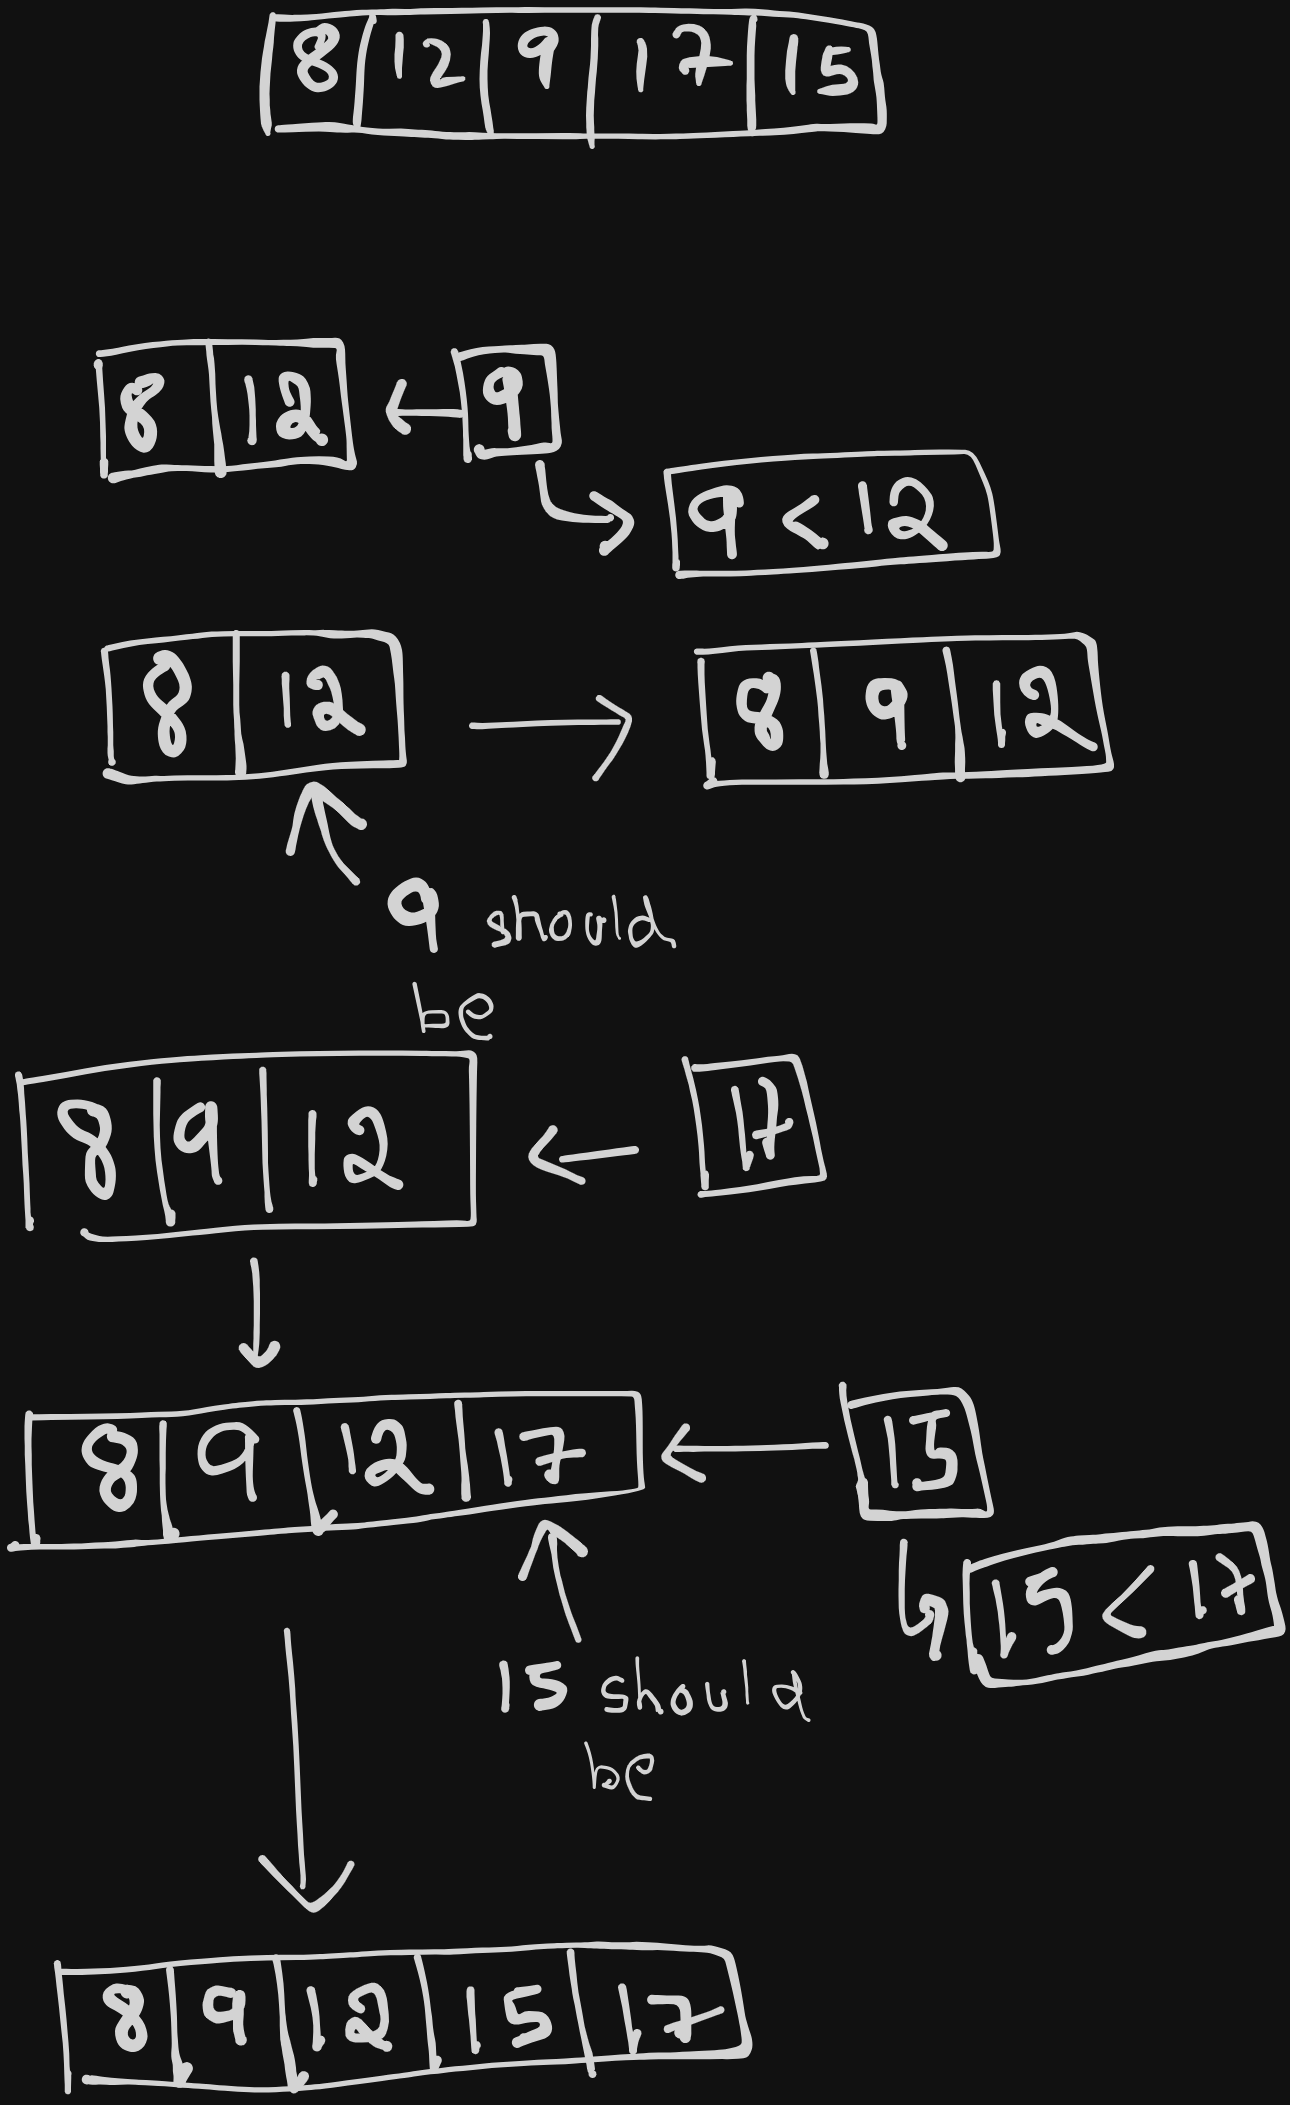 8 12 9 17 15
8 12 9
9 < 12
8 12 8 9 12
9 should
be
8 9 12 17
8 9 12 17 15
15 < 17
15 should
be
8 9 12 15 17